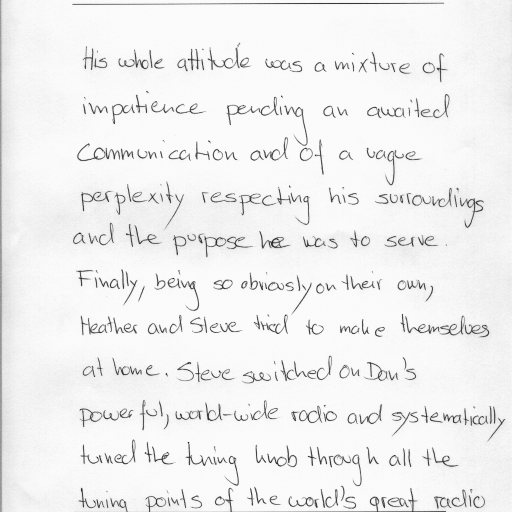 His whole attitude was a mixture of
impatience pending an awaited
communication and of a vague
perplexity respecting his surroundings
and the purpose he was to serve.
Finally, being so obviously on their own,
Heather and Steve tried to make themselves
at home. Steve switched on Dan's
powerful, world-wide radio and systematically
turned the tuning knob through all the
tuning points of the world's great radio